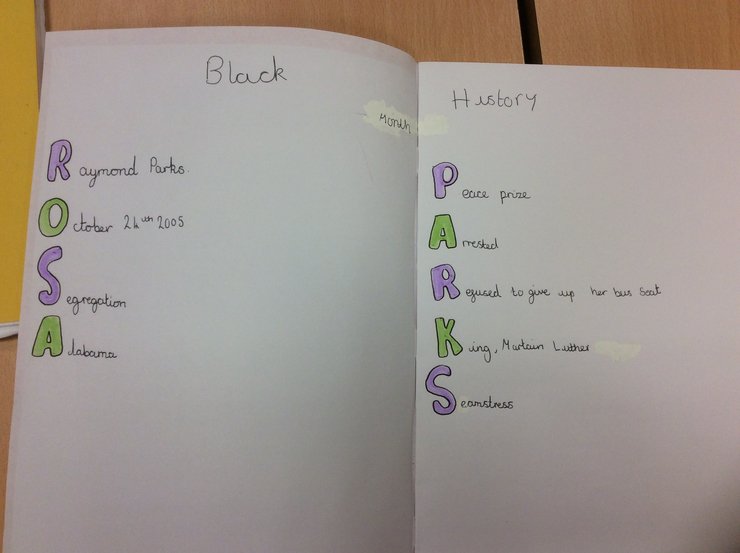 Black
History
Month
Raymond Parks.
October 24th 2005
Segregation
Alabama
Peace prize
Arrested
Refused to give up her bus seat
King, Martain Luther
Seamstress